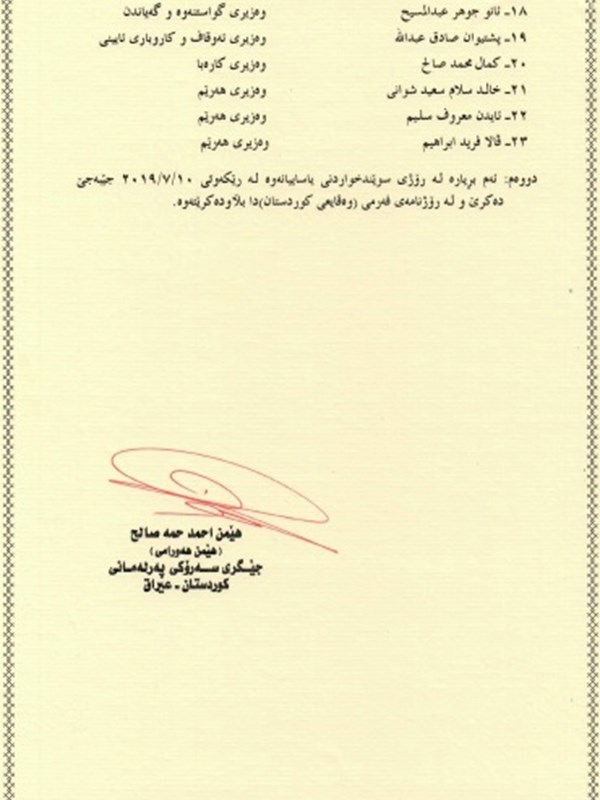 ١٨ـ ئانو جوهر عبدالمسيح وەزیری گواستنەوە و گەیاندن
١٩ـ پشتیوان صادق عبدالله وەزیری ئەوقاف و کاروباری ئایینی
٢٠ـ کمال محمد صالح وەزیری کارەبا
٢١ـ خالد سلام سعید شوانی وەزیری هەرێم
٢٢ـ ئایدن معروف سلیم وەزیری هەرێم
٢٣ـ ڤالا فرید ابراهیم وەزیری هەرێم
دووەم: ئەم بڕیارە لە ڕۆژی سوێندخواردنی یاساییانەوە لە ڕێکەوتی ٢٠١٩/٧/١٠ جێبەجێ
دەکرێ و لە ڕۆژنامەی فەرمی (وەقایعی کوردستان)دا بڵاودەکرێتەوە.
هێمن احمد حمه صالح
(هێمن هەورامی)
جێگری سەرۆکی پەرلەمانی
کوردستان - عێراق